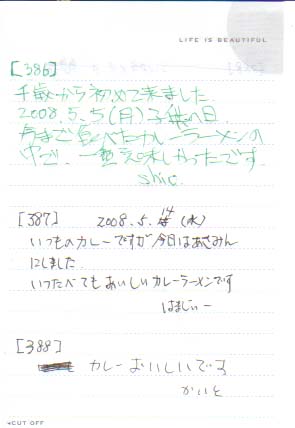 LIFE IS BEAUTIFUL
[386]
千歳から初めて来ました
2008.5.5(月)子供の日
今まで食べたカレーラーメンの
中で、一番美味しかったです
shic.
[387] 2008.5.14(水)
いつものカレーですが今日はあさみん
にしました
いつたべてもおいしいカレーラーメンです
はまじぃー
[388]
カレーおいしいです
かいと
◂CUT OFF